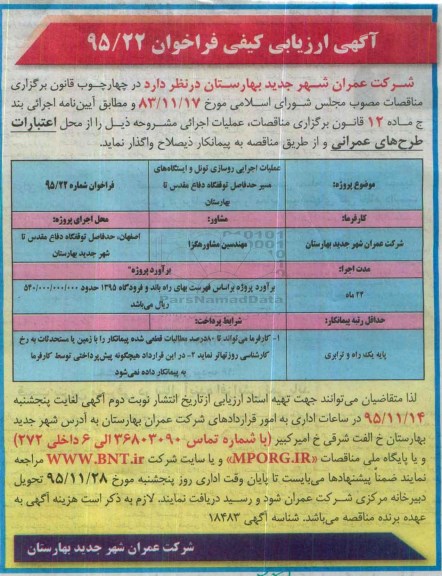 آگهی ارزیابی کیفی فراخوان ۹۵/۲۲
شرکت عمران شهر جدید بهارستان درنظر دارد در چهارچوب قانون برگزاری
مناقصات مصوب مجلس شورای اسلامی مورخ ۸۳/۱۱/۱۷ و مطابق آیین‌نامه اجرائی بند
ج ماده ۱۲ قانون برگزاری مناقصات، عملیات اجرائی مشروحه ذیل را از محل اعتبارات
طرح‌های عمرانی و از طریق مناقصه به پیمانکار ذیصلاح واگذار نماید.
موضوع پروژه:
عملیات اجرایی روسازی تونل و ایستگاه‌های
مسیر حدفاصل توقفگاه دفاع مقدس تا
بهارستان
فراخوان شماره ۹۵/۲۲
کارفرما:
مشاور:
محل اجرای پروژه:
شرکت عمران شهر جدید بهارستان
مهندسین مشاور هگزا
اصفهان، حدفاصل توقفگاه دفاع مقدس تا
شهر جدید بهارستان
مدت اجرا:
برآورد پروژه:
۲۴ ماه
برآورد پروژه براساس فهرست بهای راه باند و فرودگاه ۱۳۹۵ حدود ۵۴۰/۰۰۰/۰۰۰/۰۰۰
ریال می‌باشد
حداقل رتبه پیمانکار:
شرایط پرداخت:
پایه یک راه و ترابری
۱- کارفرما می‌تواند تا ۸۰درصد مطالبات قطعی شده پیمانکار را با زمین یا مستحدثات به رخ
کارشناسی روز تهاتر نماید ۲- در این قرارداد هیچگونه پیش‌پرداختی توسط کارفرما
به پیمانکار داده نمی‌شود
لذا متقاضیان می‌توانند جهت تهیه اسناد ارزیابی از تاریخ انتشار نوبت دوم آگهی لغایت پنجشنبه
۹۵/۱۱/۱۴ در ساعات اداری به امور قراردادهای شرکت عمران بهارستان به آدرس شهر جدید
بهارستان خ الفت شرقی خ امیرکبیر (با شماره تماس ۳۶۸۰۳۰۹۰ الی ۶ داخلی ۲۷۲)
و یا پایگاه ملی مناقصات «MPORG.IR» و یا سایت شرکت WWW.BNT.ir مراجعه
نمایند ضمنا پیشنهادها می‌بایست تا پایان وقت اداری روز پنجشنبه مورخ ۹۵/۱۱/۲۸ تحویل
دبیرخانه مرکزی شرکت عمران شود و رسید دریافت نمایند. لازم به ذکر است هزینه آگهی به
عهده برنده مناقصه می‌باشد. شناسه آگهی ۱۸۴۸۳
شرکت عمران شهر جدید بهارستان